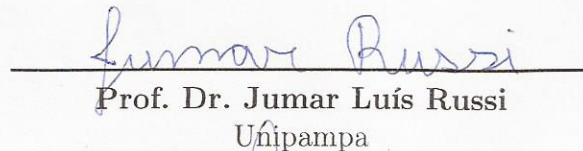 Jumar Russi
Prof. Dr. Jumar Luís Russi
Unipampa